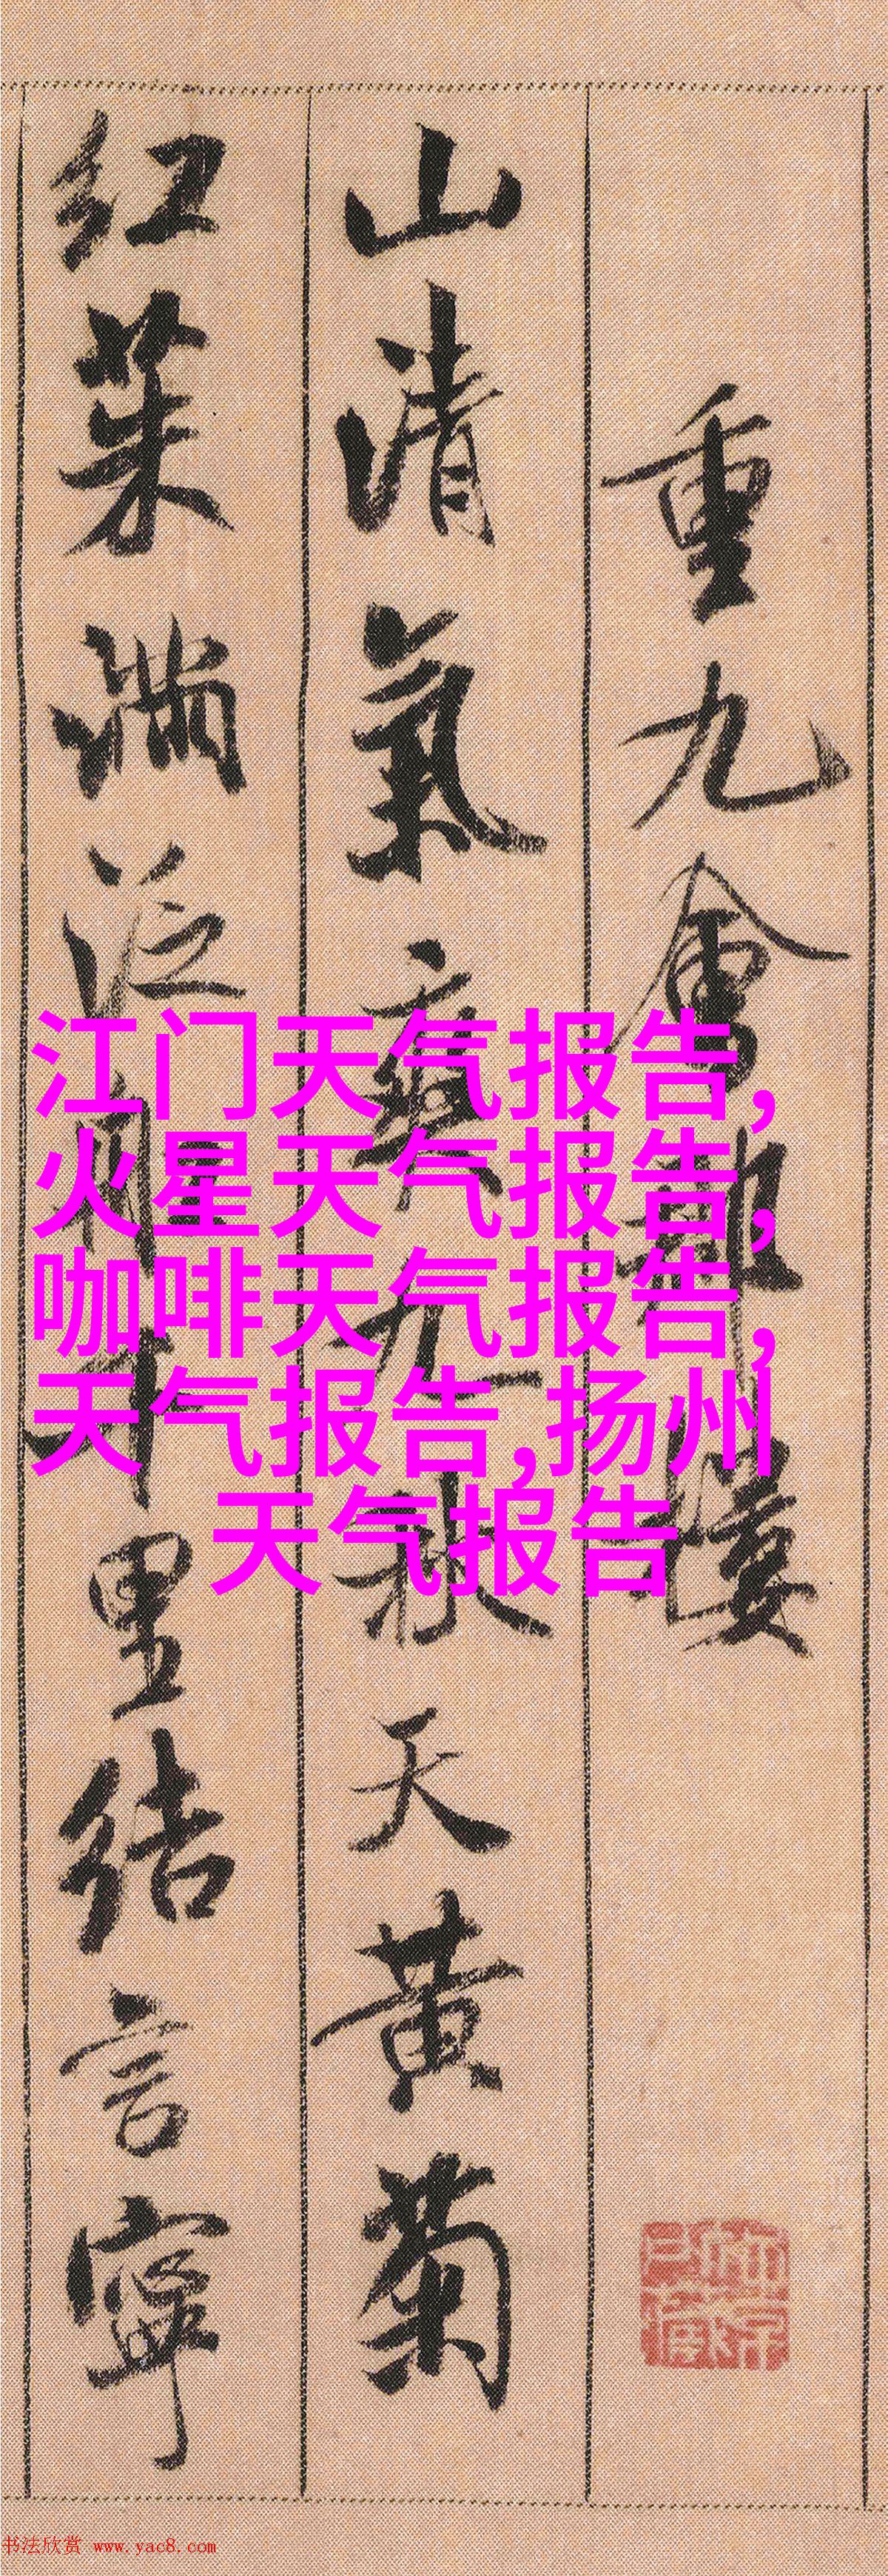 重九會郡樓
山清氣爽九秋天黃菊
紅茱滿泛船千里結言寧
江门天气报告,
火星天气报告,
咖啡天气报告,
天气报告,扬州
天气报告
书法欣赏 www.yac8.com